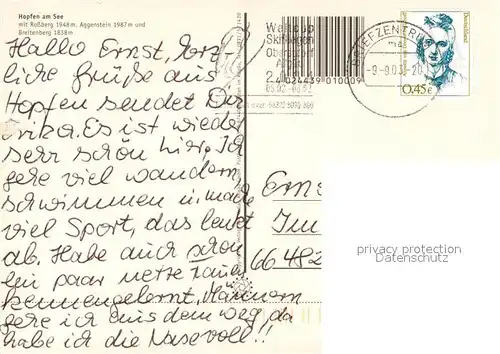 Hopfen am See
mit Roßberg 1948m. Aggenstein 1987m und
Breitenberg 1838m
Hallo Ernst, herz-
liche Grüße aus
Hopfen sendet Dir
Erika. Es ist wieder
sehr schön hier. Ich
gehe viel wandern,
schwimmen u. mache
viel Sport, das lenkt
ab. Habe auch schon
ein paar nette
kennengelernt, Männern
gehe ich aus dem weg, da
habe ich die Nase voll!!
Weltcup
Skifliegen
Oberstdorf
024439010009
BRIEFZENTRUM
-9-9.03.-20
Deutschland
0,45€
66482
privacy protection
Datenschutz